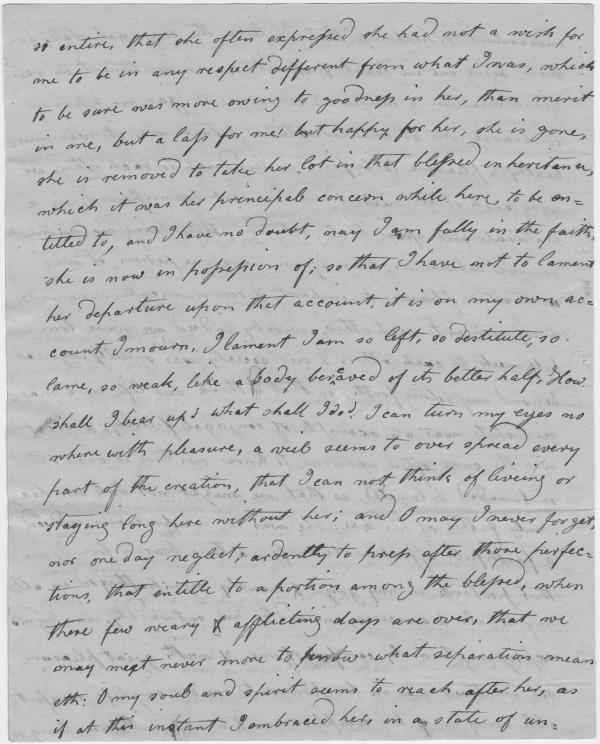 so entire, that she often expressed she had not a wish for
me to be in any respect different from what I was, which
to be sure was more owing to goodness in her, than merit
in me, but a lass for me! but happy for her, she is gone,
she is removed to take her lot in that blessed inheritance,
which it was her principal concern while here, to be en=
titled to, and I have no doubt, nay I am fully in the faith,
she is now in possession of; so that I have not to lament
her departure upon that account, it is on my own ac=
count I mourn, I lament I am so left, so destitute, so
lame, so weak, like a body bereaved of its better half, How
shall I bear up? what shall I do? I can turn my eyes no
where with pleasure, a veil seems to over spread every
part of the creation, that I can not think of liveing or
staying long here without her; and O may I never forget,
nor one day neglect, ardently to press after those perfec=
tions, that entitle to a portion among the blessed, when
these few weary & afflicting days are over, that we
may meet never more to know what separation mean
eth: O my soul and spirit seems to reach after her, as
if at this instant I embraced her, in a state of un=